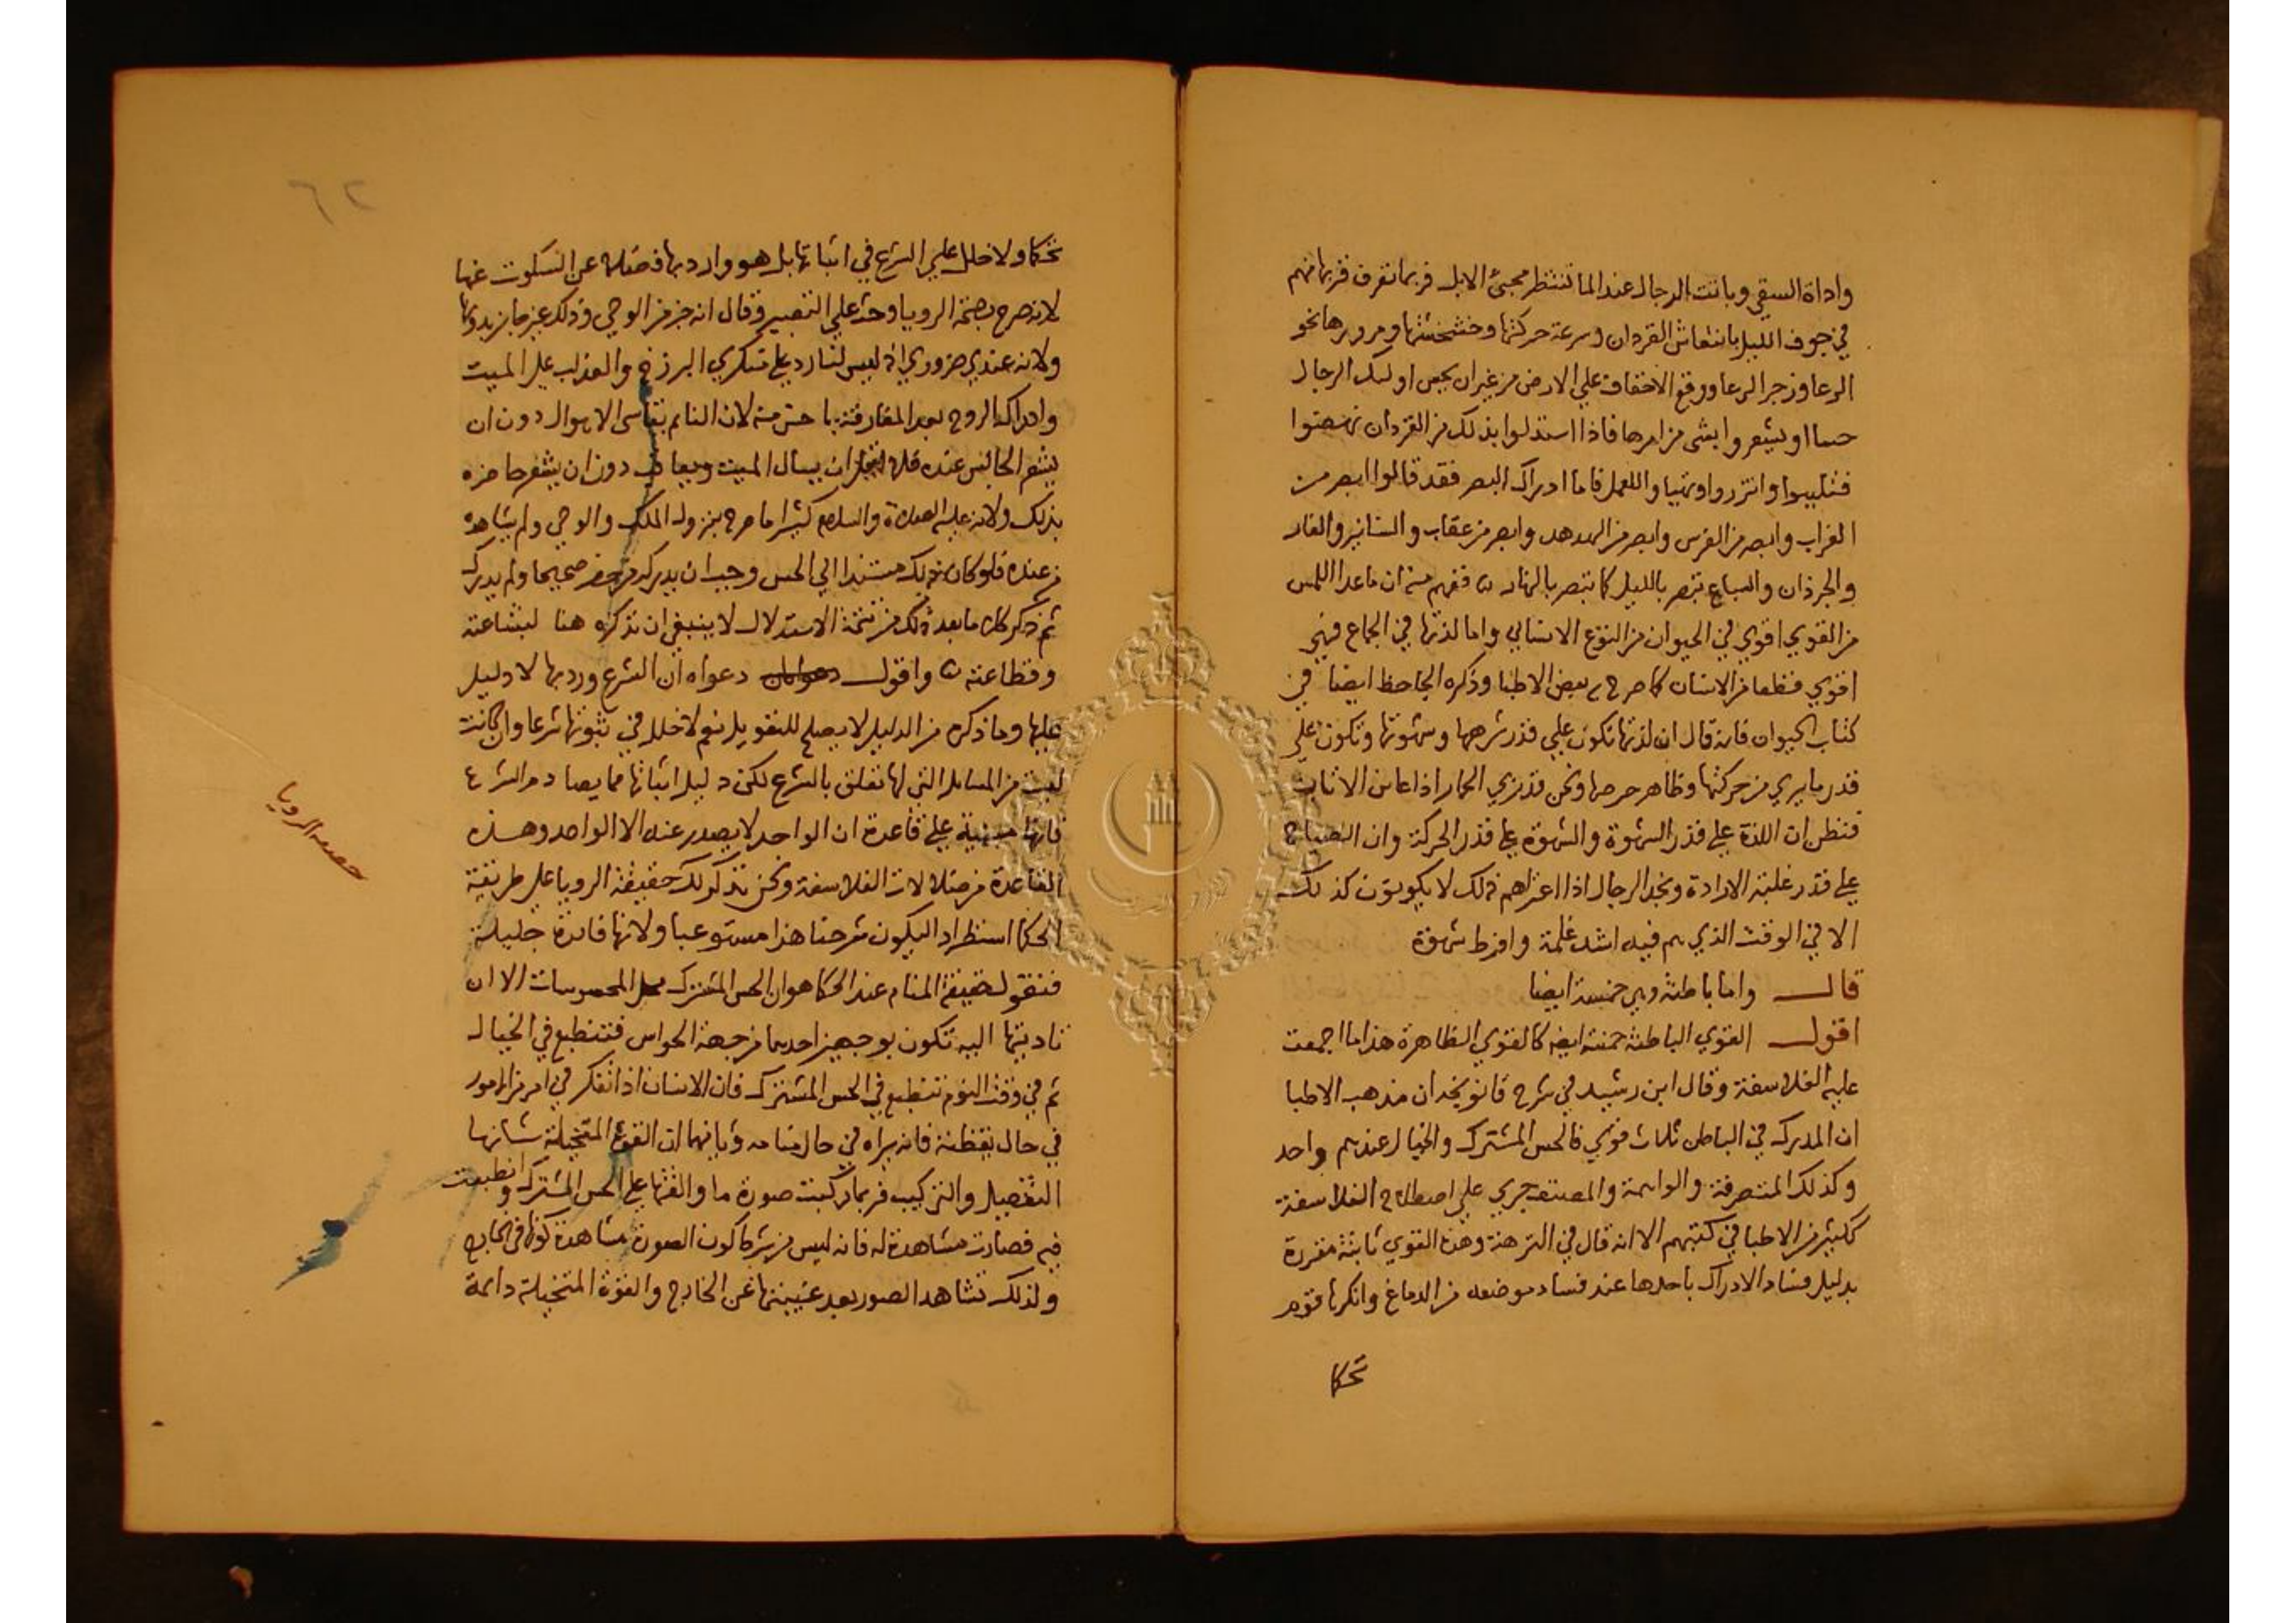 واداة السقي وباتت الرجال عند الما تنتظر مجيئ الابل فربما تعرف قربها منهم
في جوف الليل بانتعاش القردان وسرعة حركتها وخشخشتها ومرورها نحو
الرعا وزجر الرعا ووقع الاخفاف علي الارض من غير ان يحس اوليك الرجال
حسا او يشعروا بشى من امرها فاذا استدلوا بذلك من القردان نهضوا
فتلببوا واتزروا وتهياوا للعمل فاما ادراك البصر فقد قالوا ابصر من
الغراب وابصر من الفرس وابصر من الهدهد وابصر من عقاب والسنانير والفار
والجرذان والسباع تبصر بالليل كما تبصر بالنهار ففهم منه ان ماعدا اللمس
من القوي اقوي في الحيوان من النوع الانساني واما لذتها في الجماع فهي
اقوي قطعا من الانسان كما صرح به بعض الاطبا وذكره الجاحظ ايضا في
كتاب الحيوان فانه قال ان لذتها تكون علي قدر شرهها وشهوتها وتكون علي
قدر مايري من حركتها وظاهر حرصها ونحن قد نري الحمار اذا عاين الاتان
فنظن ان اللذة علي قدر الشهوة والشهوة علي قدر الحركة وان الصياح
علي قدر غلبة الارادة ونجد الرجال اذا اعتراهم ذلك لا يكونون كذلك
الا في الوقت الذي هم فيه اشد غلمة وافرط شهوة
قال واما باطنة وهي خمسة ايضا
اقول القوي الباطنة خمسة ايضا كالقوي الظاهرة هذا ما اجمعت
عليه الفلاسفة وقال ابن رشيد في شرح قانونچه ان مذهب الاطبا
ان المدرك في الباطن ثلاث قوي فالحس المشترك والخيال عندهم واحد
وكذلك المتصرفة والواهمة والمصنف جري علي اصطلاح الفلاسفة
ككثير من الاطبا في كتبهم الا انه قال في النزهة وهذه القوي ثابتة مقررة
بدليل فساد الادراك باحدها عند فساد موضعه من الدماغ وانكرها قوم
تحكما
٦٢
تحكما ولا خلل علي الشرع في اثباتها بل هو وارد بها فضلا عن السكوت عنها
لانه صرح بصحة الرويا وحث علي التعبير وقال انه جز من الوحي وذلك غير جايز بدونها
ولانه عندي ضروري اذ ليس لنا رد علي منكري البرزخ والعذاب علي الميت
وادراك الروح بعد المفارقة باحسن منه لان النايم يقاسى الاهوال دون ان
يشعر الجالس عنده فلا ان يسال الميت ويعاقب دون ان يشعر حاضره
بذلك ولانه عليه الصلاة والسلام كثيرا ما صرح بنزول الملك والوحي ولم يشاهده
من عنده فلو كان ذلك مستندا الي الحس وجب ان يدركه من حضر صحيحا ولم يدرك
ثم ذكر كلاما بعد ذلك من تتمة الاستدلال لا ينبغي ان نذكره هنا لبشاعته
وفظاعته واقول دعواه ان الشرع ورد بها لا دليل
عليها وما ذكره من الدليل لا يصلح للتعويل نعم لا خلل في ثبوتها شرعا وان كانت
ليست من المسايل التي لها تعلق بالشرع لكن دليل اثباتها مما يصادم الشرع
فانها مبنية علي قاعدة ان الواحد لا يصدر عنه الا الواحد وهذه
القاعدة من ضلالات الفلاسفة ونحن نذكر لك حقيقة الرويا علي طريقة
الحكما استطرادا ليكون شرحنا هذا مستوعبا ولانها فايدة جليلة
فنقول حقيقة المنام عند الحكما هو ان الحس المشترك محل المحسوسات الا ان
تاديتها اليه تكون بوجهين احدهما من جهة الحواس فتنطبع في الخيال
ثم في وقت النوم تنطبع في الحس المشترك فان الانسان اذا تفكر في امر من الامور
في حال يقظته فانه يراه في حال منامه وثانيهما ان القوة المتخيلة شانها
التفصيل والتركيب فربما ركبت صورة ما والقتها علي الحس المشترك وانطبعت
فيه فصارت مشاهدة له فانه ليس من شرط كون الصورة مشاهدة كونها في الخارج
ولذلك تشاهد الصور بعد غيبتها عن الخارج والقوة المتخيلة دايمة
الرويا